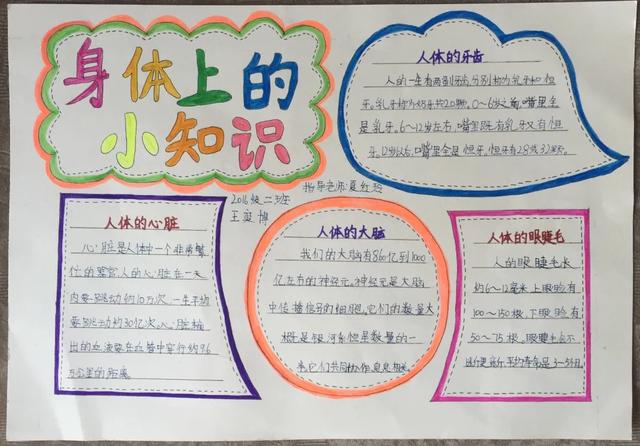 身体上的
小知识
人体的牙齿
人的一生有两副牙齿,分别称为乳牙和恒
牙。乳牙称为奶牙共20颗。0~6岁之前,嘴里全
是乳牙。6~12岁左右,嘴里既有乳牙又有恒
牙。12岁以后,嘴里全是恒牙。恒牙有28或32颗。
指导老师:夏红玲
2016级二班
王奕博
人体的心脏
心脏是人体中一个非常繁
忙的器官人的心脏在一天
内要跳动约10万次,一年平均
要跳动约30亿次。心脏输
出的血液要在血管中穿行约96
万公里的距离。
人体的大脑
我们的大脑有860亿到1000
亿左右的神经元。神经元是大脑
中传播信号的细胞。它们的数量大
概是银河系恒星数量的一
半。它们共同协作,息息相关。
人体的眼睫毛
人的眼睫毛长
约6~12毫米。上眼睑有
100~150根,下眼睑有
50~75根。眼睫毛也不
断更新,平均寿命是3~5个月。